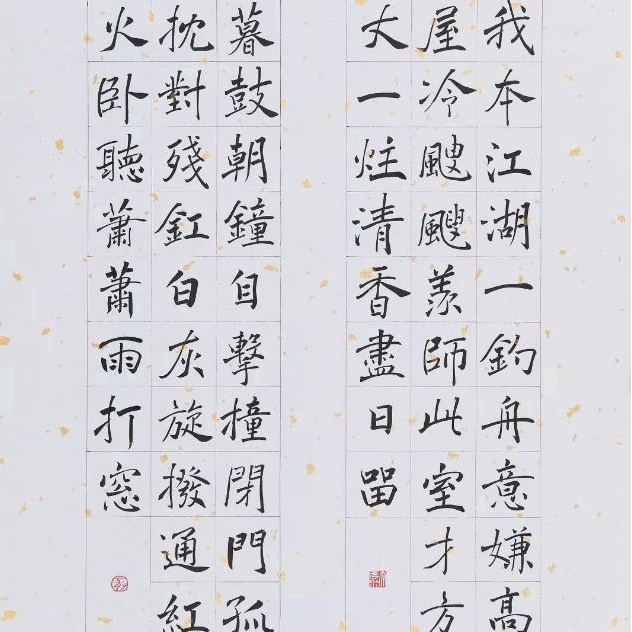 我本江湖一釣舟意嫌高
屋冷颼颼羨師此室才方
丈一炷清香盡日留
暮鼓朝鐘自擊撞閉門孤
枕對殘釭白灰旋撥通紅
火卧聽蕭蕭雨打窓